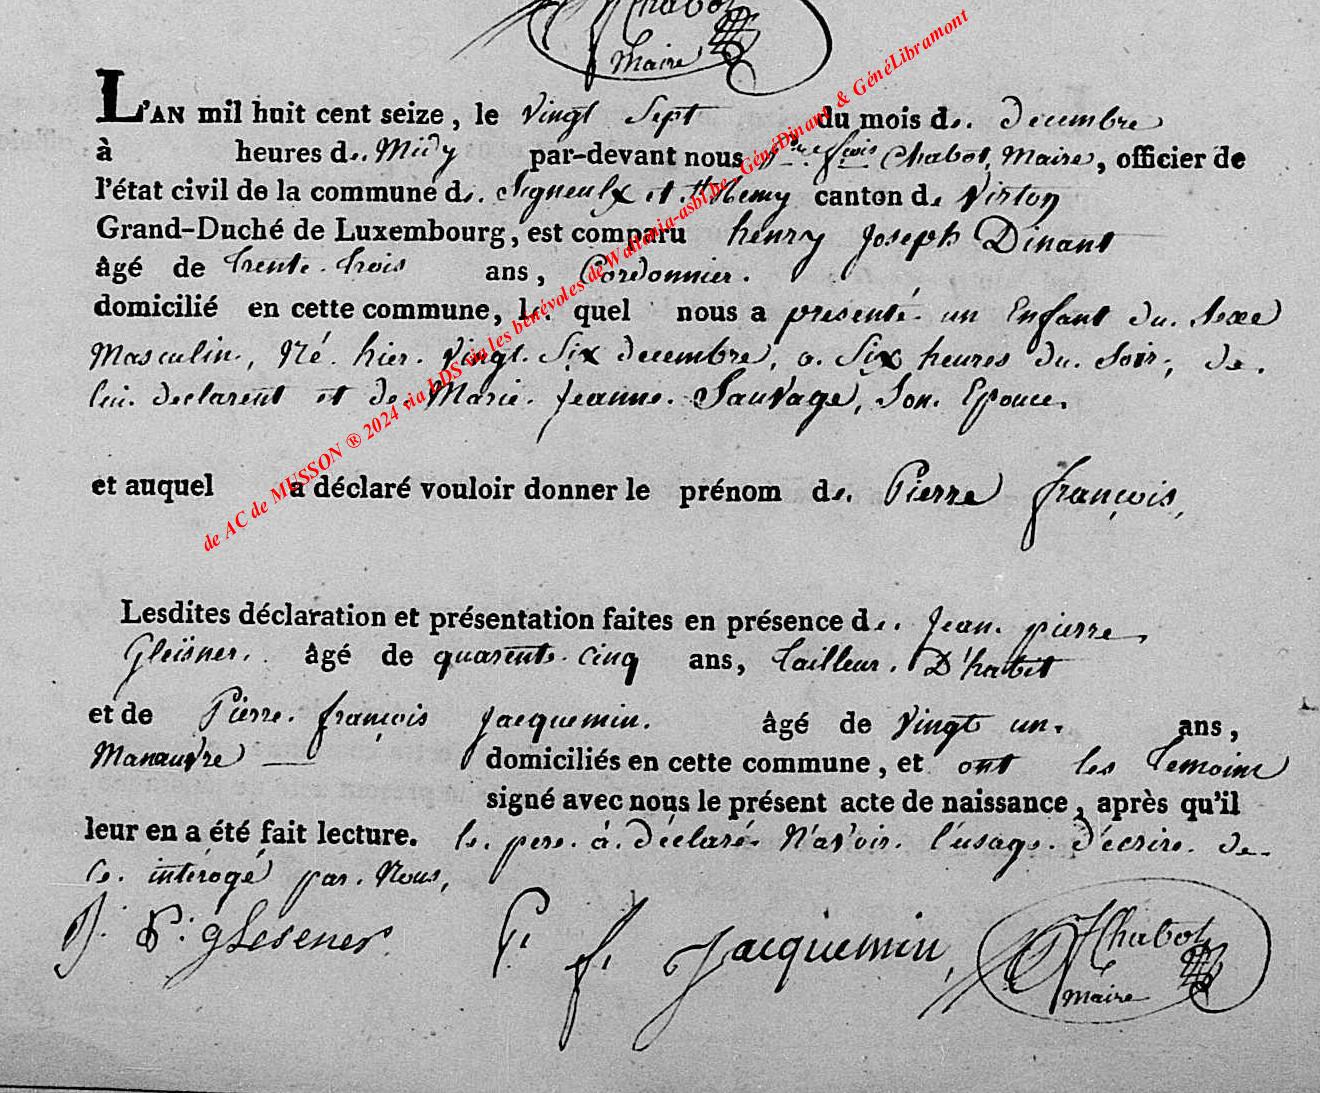 Chabot
Maire
L'AN mil huit cent seize, le vingt sept du mois de. decembre
à heures de. Midy par-devant nous françois Chabot, Maire, officier de
l'état civil de la commune de. Signeulx et St Remy canton de Virton
Grand-Duché de Luxembourg, est comparu henry Joseph Dinant
âgé de trente. trois ans, Cordonnier.
domicilié en cette commune, le. quel nous a presenté. un Enfant du. Sexe
Masculin, Né. hier. vingt. Six decembre, a. Six heures du. Soir, de.
lui. declarent et de. Marie. Jeanne. Sauvage, Son. Epouce.
et auquel a déclaré vouloir donner le prénom de. Pierre françois,
Lesdites déclaration et présentation faites en présence de. Jean. pierre
Gleisner. âgé de quarente. cinq ans, tailleur. D'habit
et de Pierre. françois Jacquemin. âgé de vingt un. ans,
Manauvre domiciliés en cette commune, et ont les temoins
signé avec nous le présent acte de naissance, après qu'il
leur en a été fait lecture. le. pere. à. déclaré. N'avoir. l'usage. d'écrire. de.
Ce. intérogé par. Nous,
J. P. glesener P. f. Jacquemin, Chabot
maire
de AC de MUSSON ® 2024 via LDS via les bénévoles de Wallonia-asbl.be, GénéDinant & GénéLibramont